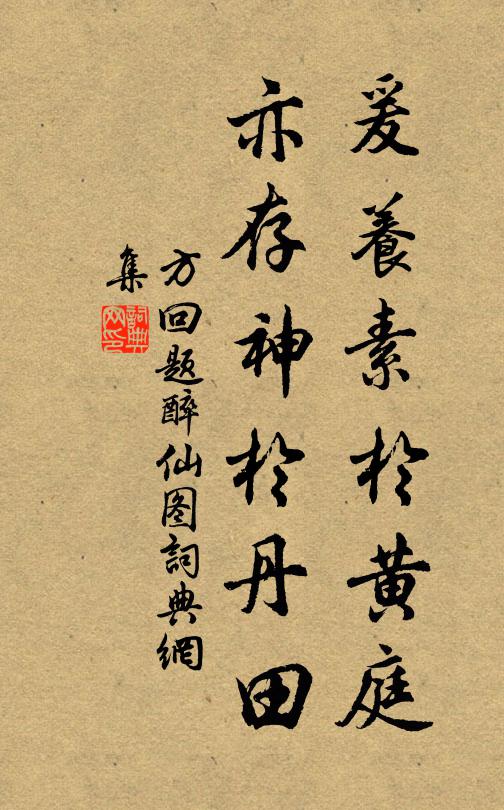 爰養素於黄庭
亦存神於丹田
方回题醉仙图詞典網
集
詞典
网印